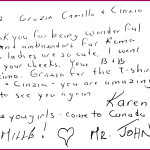 Grazia Camilla & Cinzia
k you for being wonderful
and ambassadors for Roma
ladies are so cute. I want
your cheeks. Your B&B
ima. Grazia for the T-shir
Cinzia - you are amazing
to see you again
Karen
you girls - come to Canada
MILLE! ♡ MR. JOHN